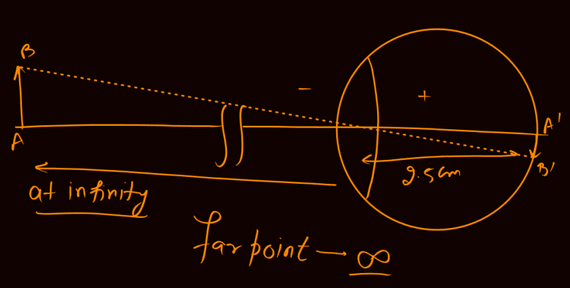 B
- +
A A'
B'
2.5cm
at infinity
far point → ∞